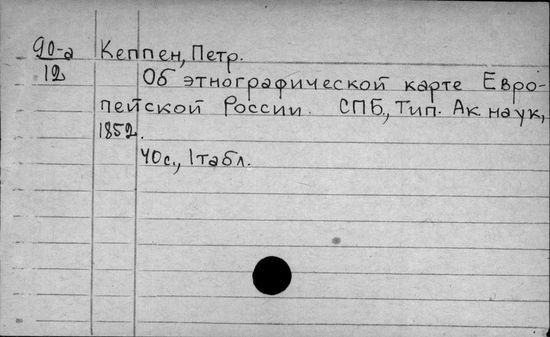 90-а Кеппен, Петр.
12
Об этнографической карте Евро-
пейской России. СПБ., Тип. Ак. наук,
1852.
40с., 1табл.